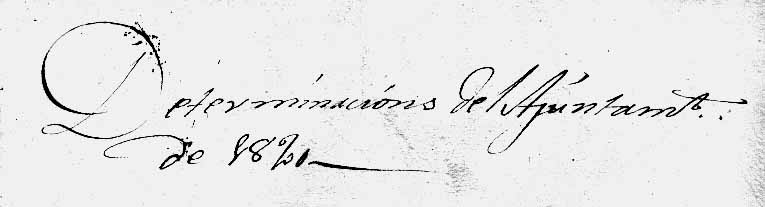 Determinacións del Ajúntamt.
de 1820